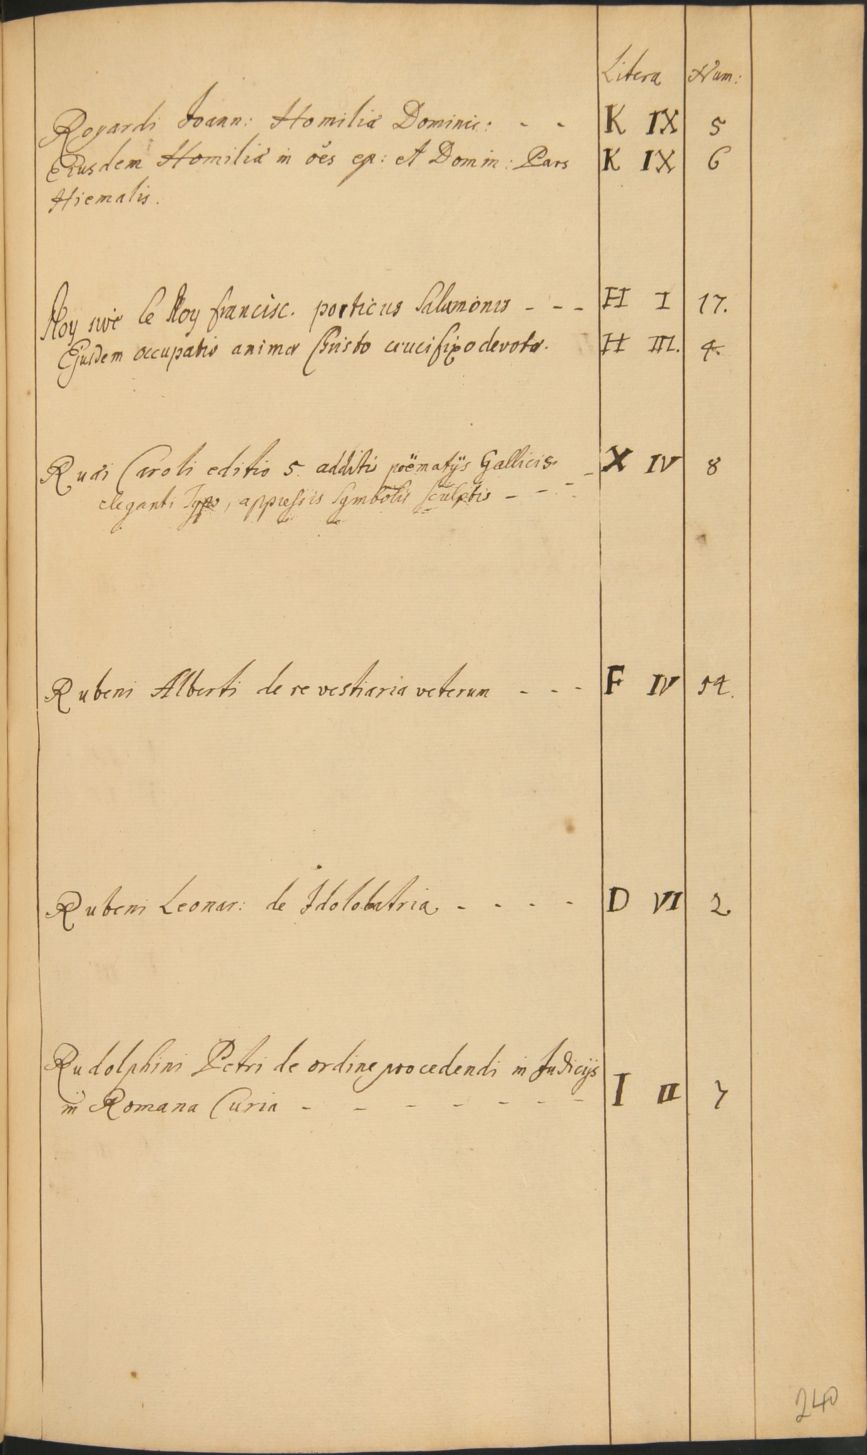 Litera Num:
Royardi Joann: Homiliæ Dominic: - - K IX 5
Eiusdem Homiliæ in oēs ep: et Domin: Pars K IX 6
Hiemalis.
Roy sive le Roy francisc. porticus Salamonis - - - H I 17.
Ejusdem occupatio animæ Christo crucifixo devotæ. H III. 4.
Ruæi Caroli editio 5. additis poëmatijs Gallicis - X IV 8
eleganti Typo, appressis Symbolis sculptis - - -
Rubeni Alberti de re vestiaria veterum - - - F IV 54.
Rubeni Leonar: de Idololatria - - - - D VI 2
Rudolphini Petri de ordine procedendi in Judicijs
in Romana Curia - - - - - - - I II 7
240